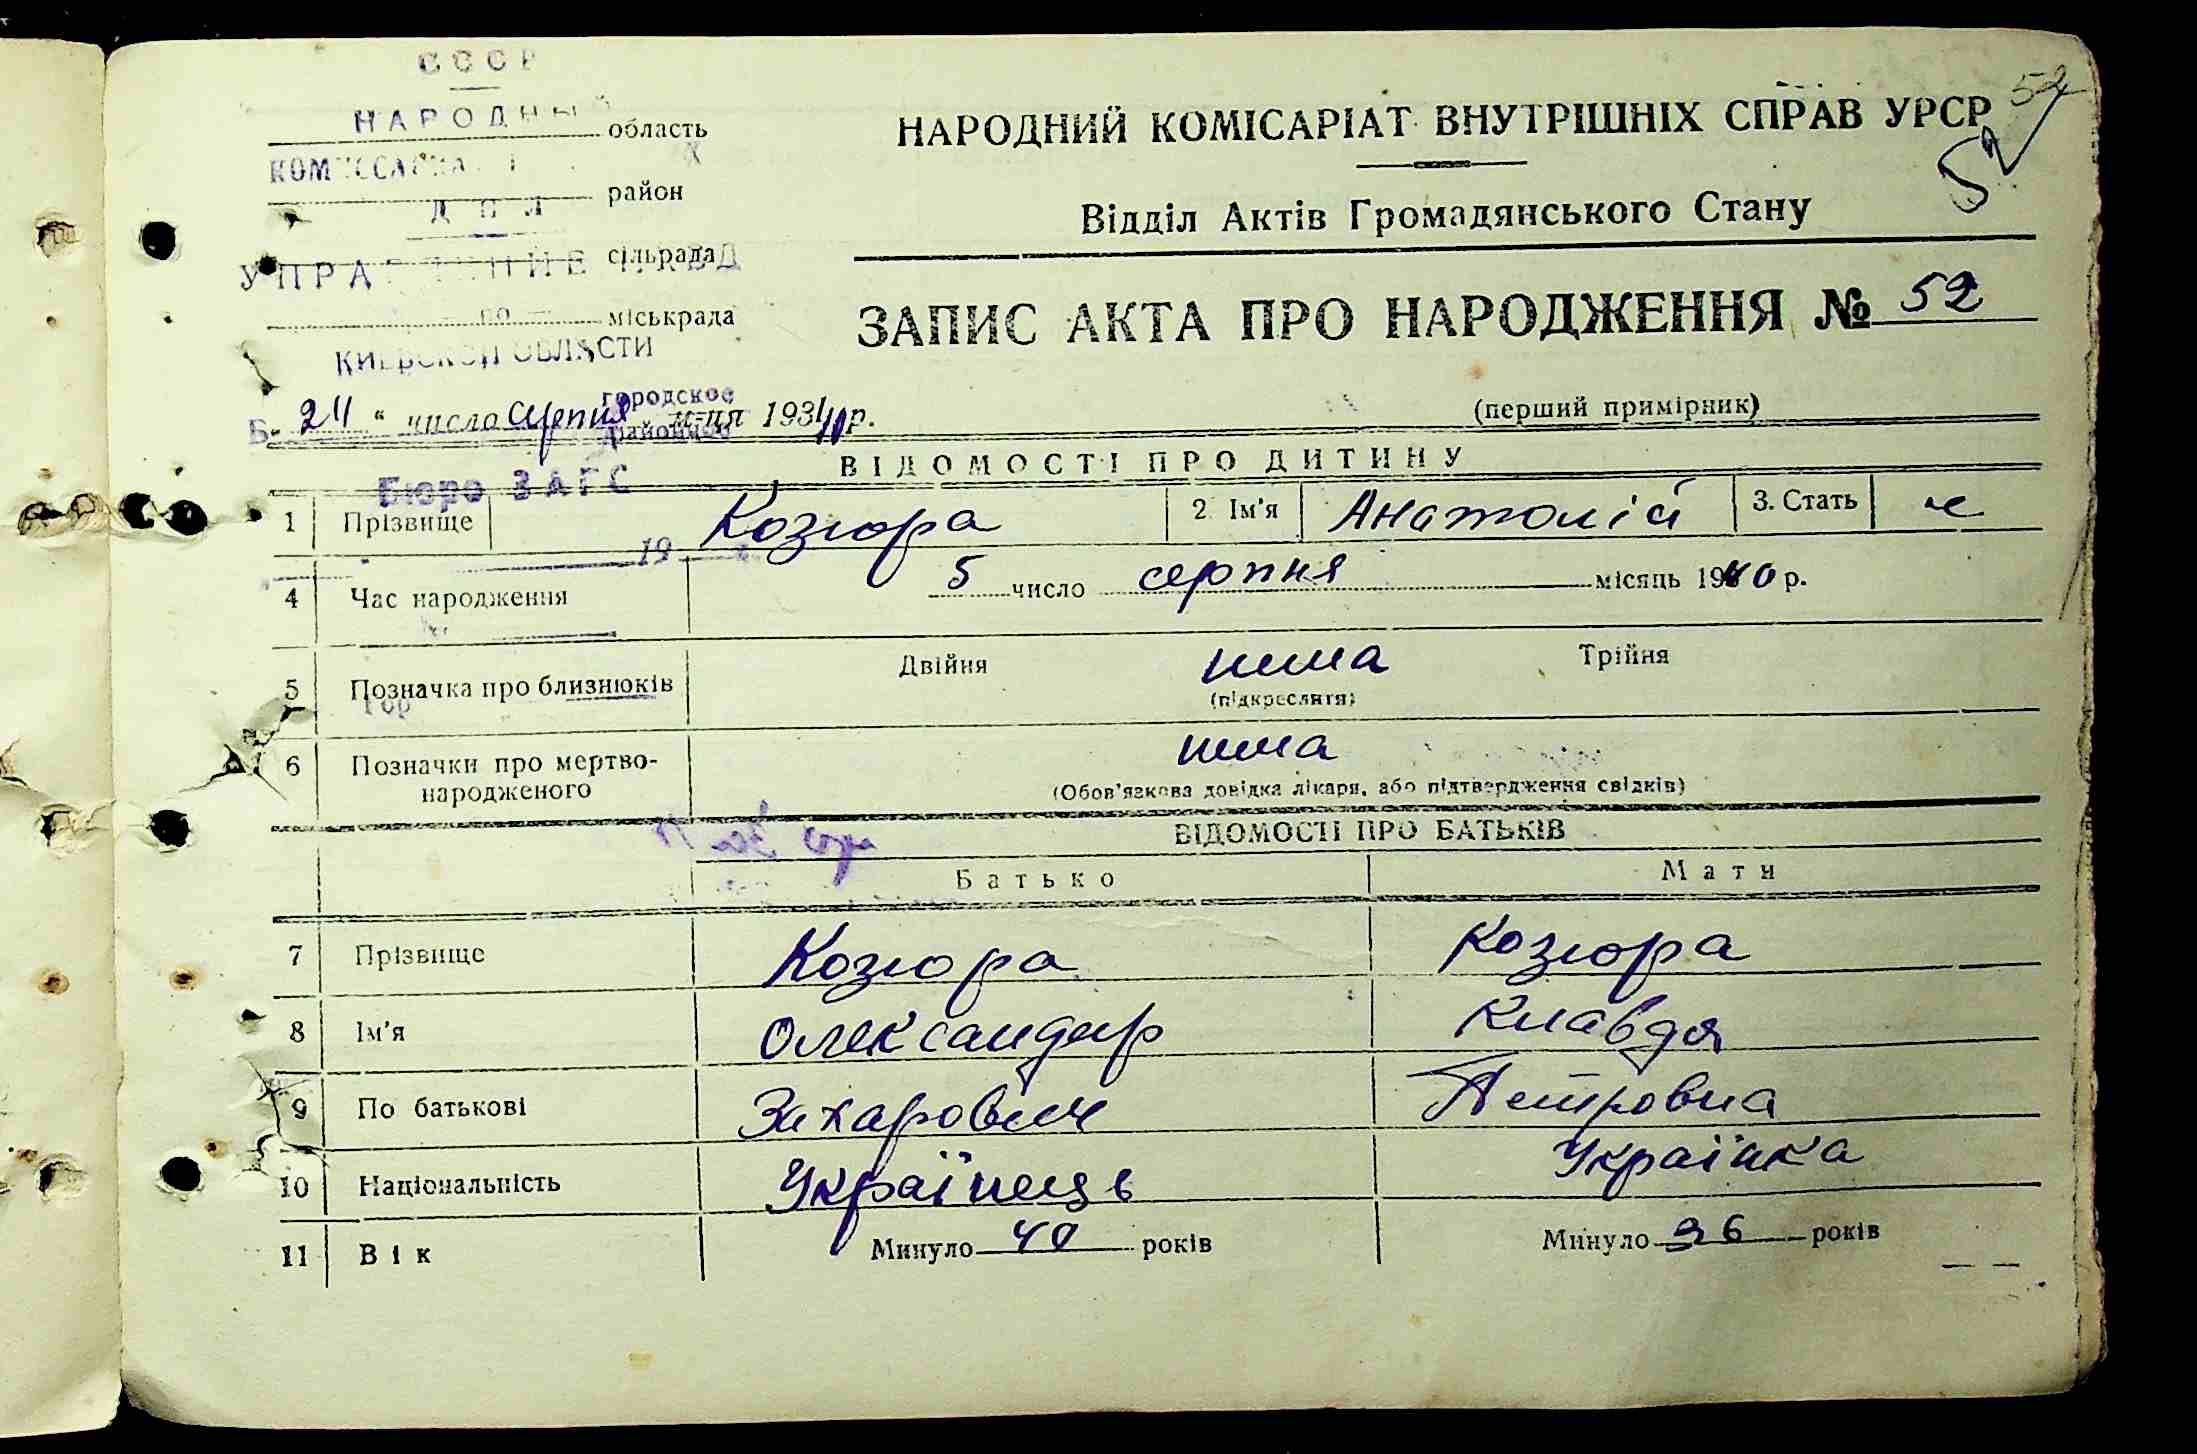 СССР
НАРОДНЫЙ
область
НАРОДНИЙ КОМІСАРІАТ ВНУТРІШНІХ СПРАВ УРСР
52
район
сільрада
Відділ Актів Громадянського Стану
УПРАВЛЕНИЕ НКВД
по міськрада
КИЕВСКОЙ ОБЛАСТИ
ЗАПИС АКТА ПРО НАРОДЖЕННЯ № 52
городское
районное
24 " число серпня м-ця 1940 р.
(перший примірник)
ВІДОМОСТІ ПРО ДИТИНУ
Бюро ЗАГС
1 Прізвище Козюра 2. Ім'я Анатолій 3. Стать ч
19
4 Час народження 5 число серпня місяць 1940 р.
5 Позначка про близнюків Двійня нема Трійня
Гор
(підкреслити)
6 Позначки про мертво-
народженого
нема
(Обов'язкова довідка лікаря, або підтвердження свідків)
ВІДОМОСТІ ПРО БАТЬКІВ
Батько Мати
7 Прізвище Козюра Козюра
8 Ім'я Олександер Клавдя
9 По батькові Захарович Петровна
10 Національність Українець Українка
11 Вік Минуло 40 років Минуло 36 років